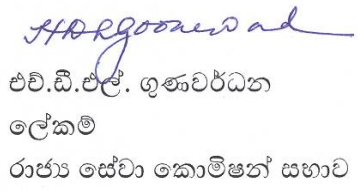 HDLGoonewad
එච්.ඩී.එල්. ගුණවර්ධන
ලේකම්
රාජ්‍ය සේවා කොමිෂන් සභාව